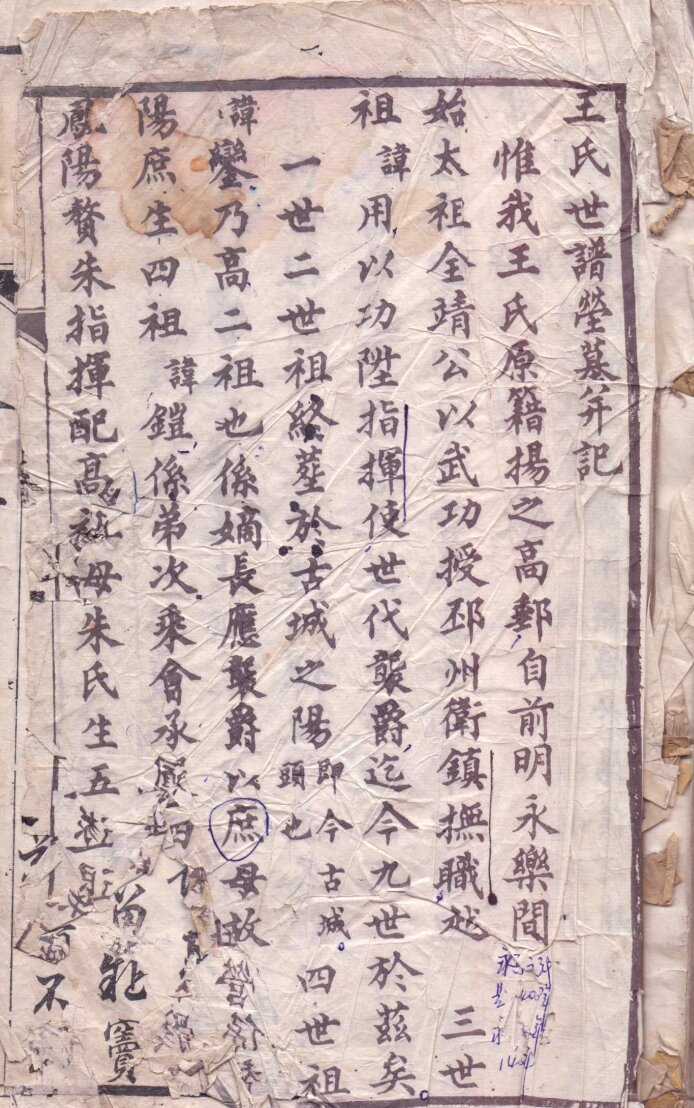 王氏世譜塋墓并記
惟我王氏原籍揚之高郵自前明永樂間
始太祖全靖公以武功授邳州衛鎮撫職 三世
祖諱用以功陞指揮使世代襲爵迄今九世於茲矣
一世二世祖終塟於古城之陽即今古城頭也 四世祖
諱鑾乃高二祖也係嫡長應襲爵以庶母故
陽庶生四祖諱鎧係弟次乘會承四
鳳陽贅朱指揮配高祖母朱氏生五
不